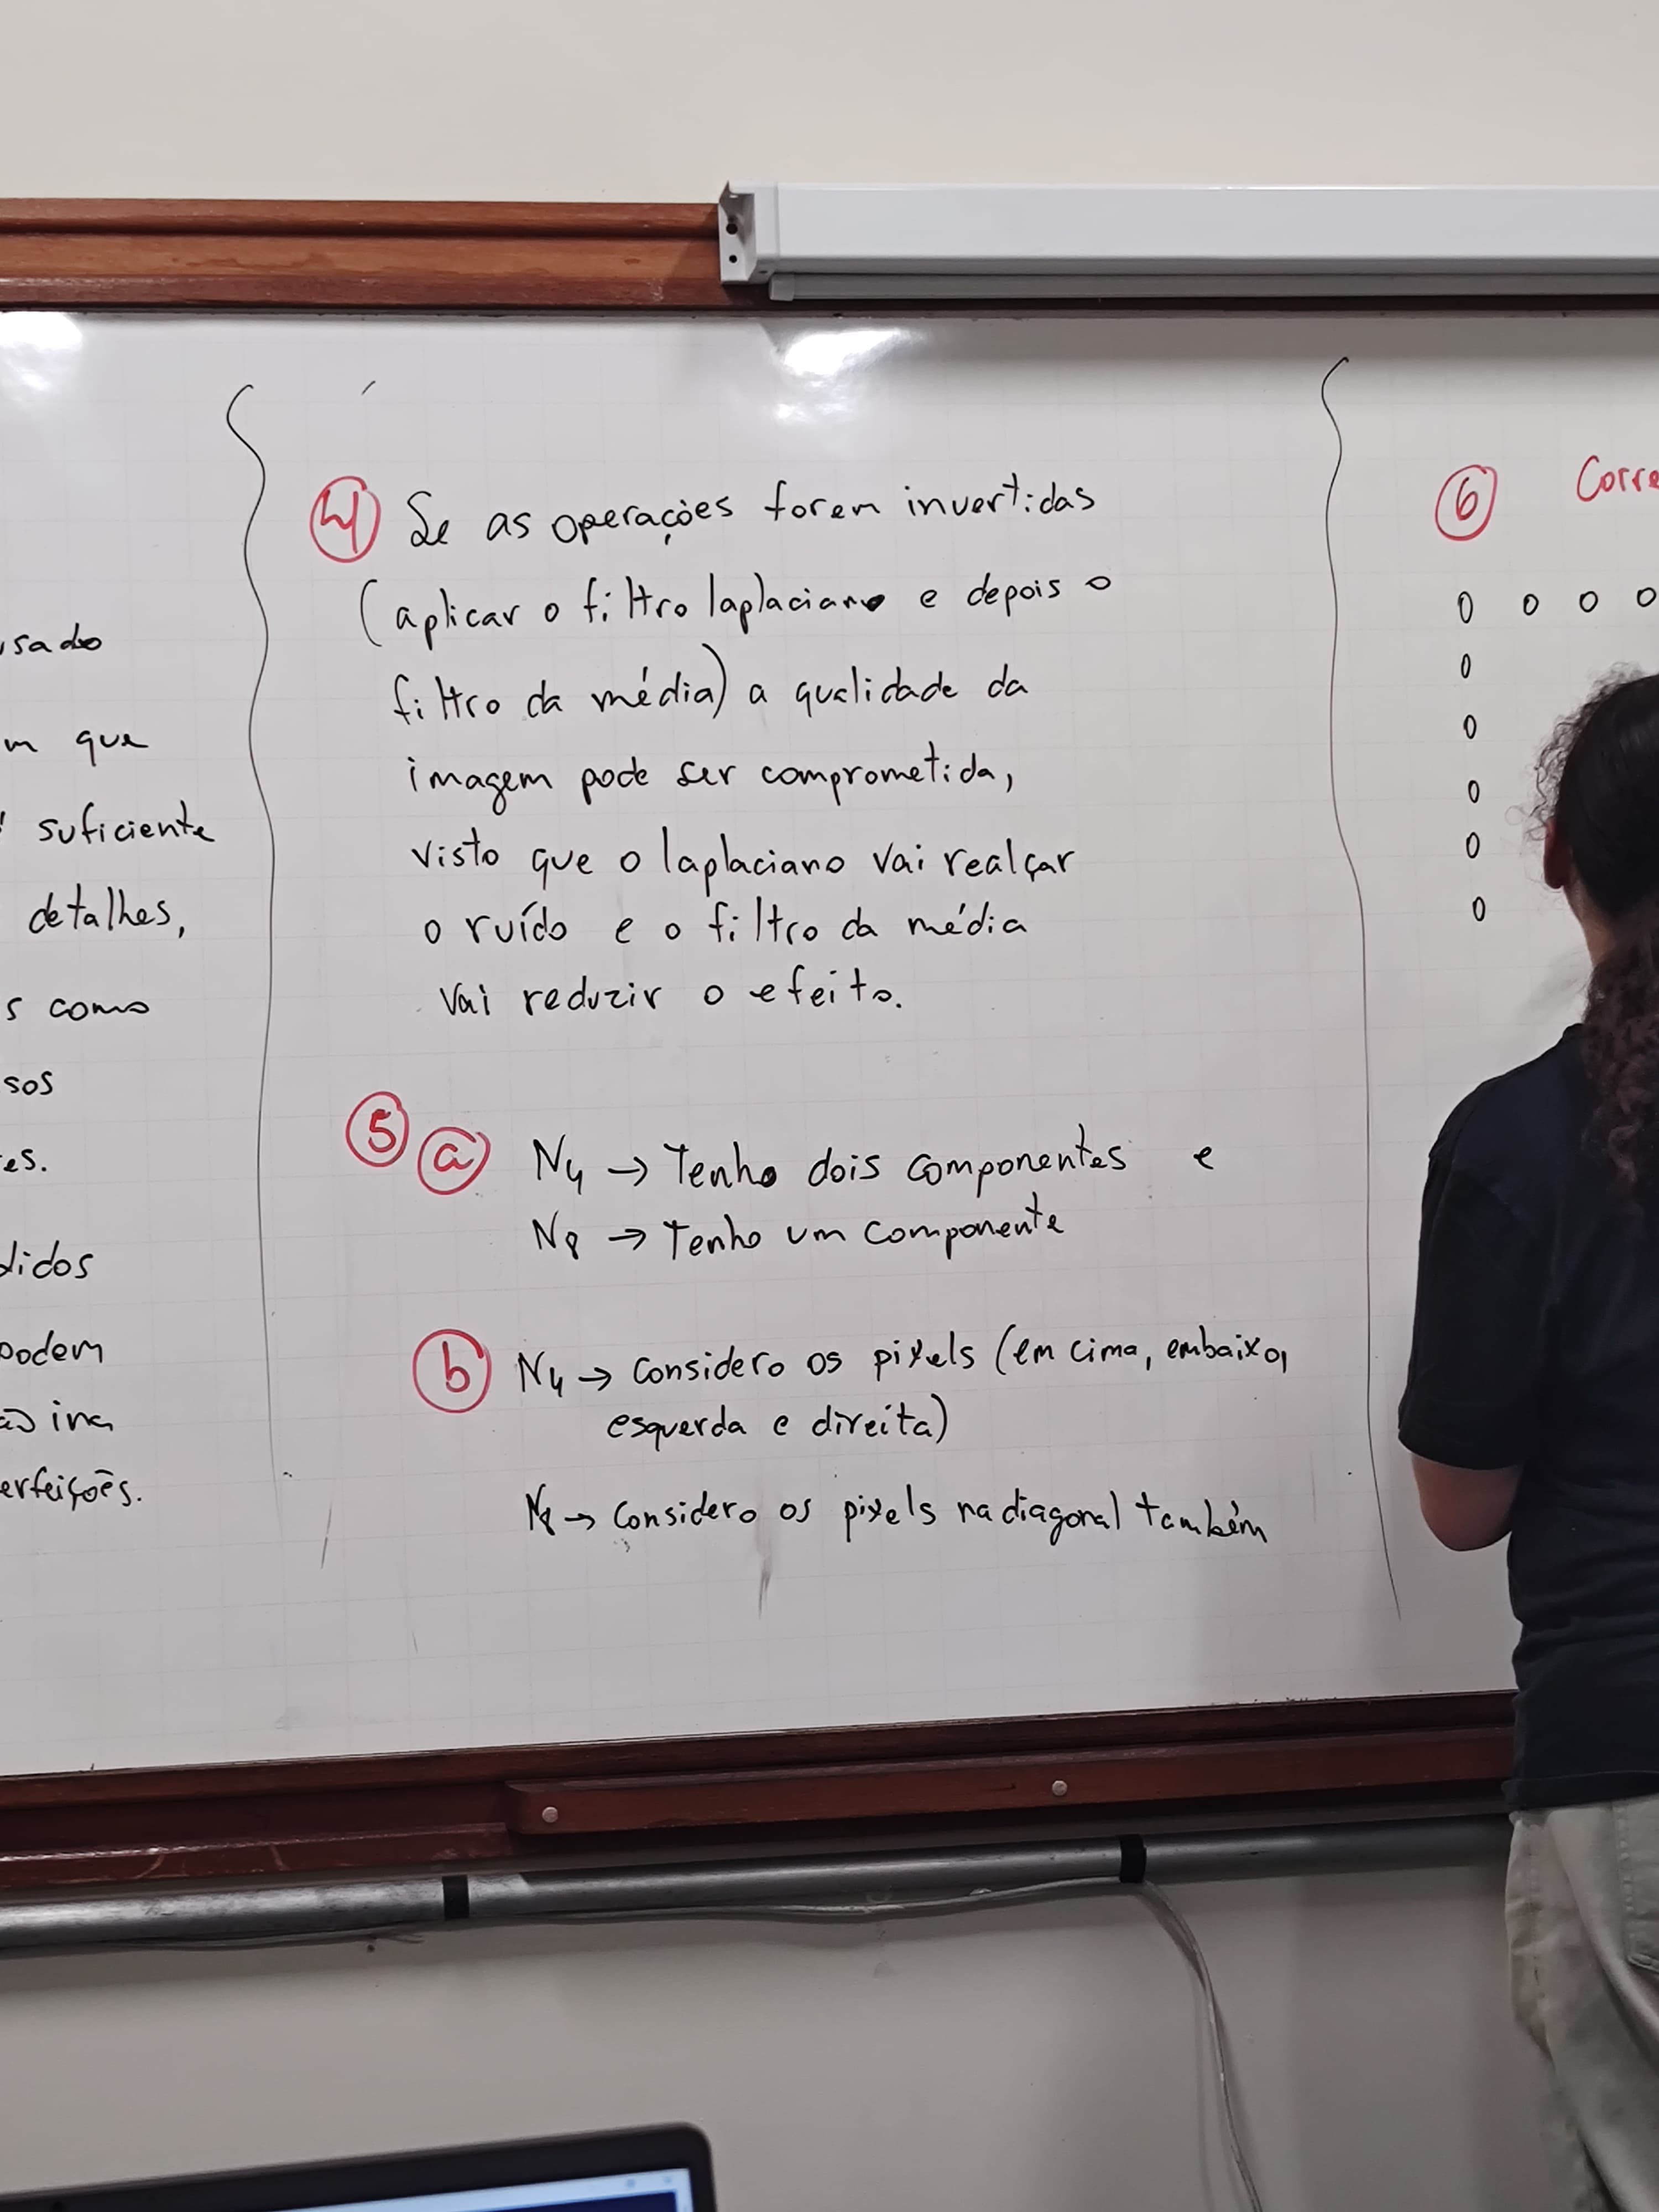 sado
que
suficiente
detalhes,
s como
sos
es.
didos
podem
erfeições.
④ Se as operações forem invertidas
(aplicar o filtro laplaciano e depois o
filtro da média) a qualidade da
imagem pode ser comprometida,
visto que o laplaciano vai realçar
o ruído e o filtro da média
vai reduzir o efeito.
⑤ ⓐ N4 → Tenho dois componentes e
N8 → Tenho um componente
ⓑ N4 → Considero os pixels (em cima, embaixo,
esquerda e direita)
N8 → Considero os pixels na diagonal também
⑥ Corre
0 0 0 0
0
0
0
0
0